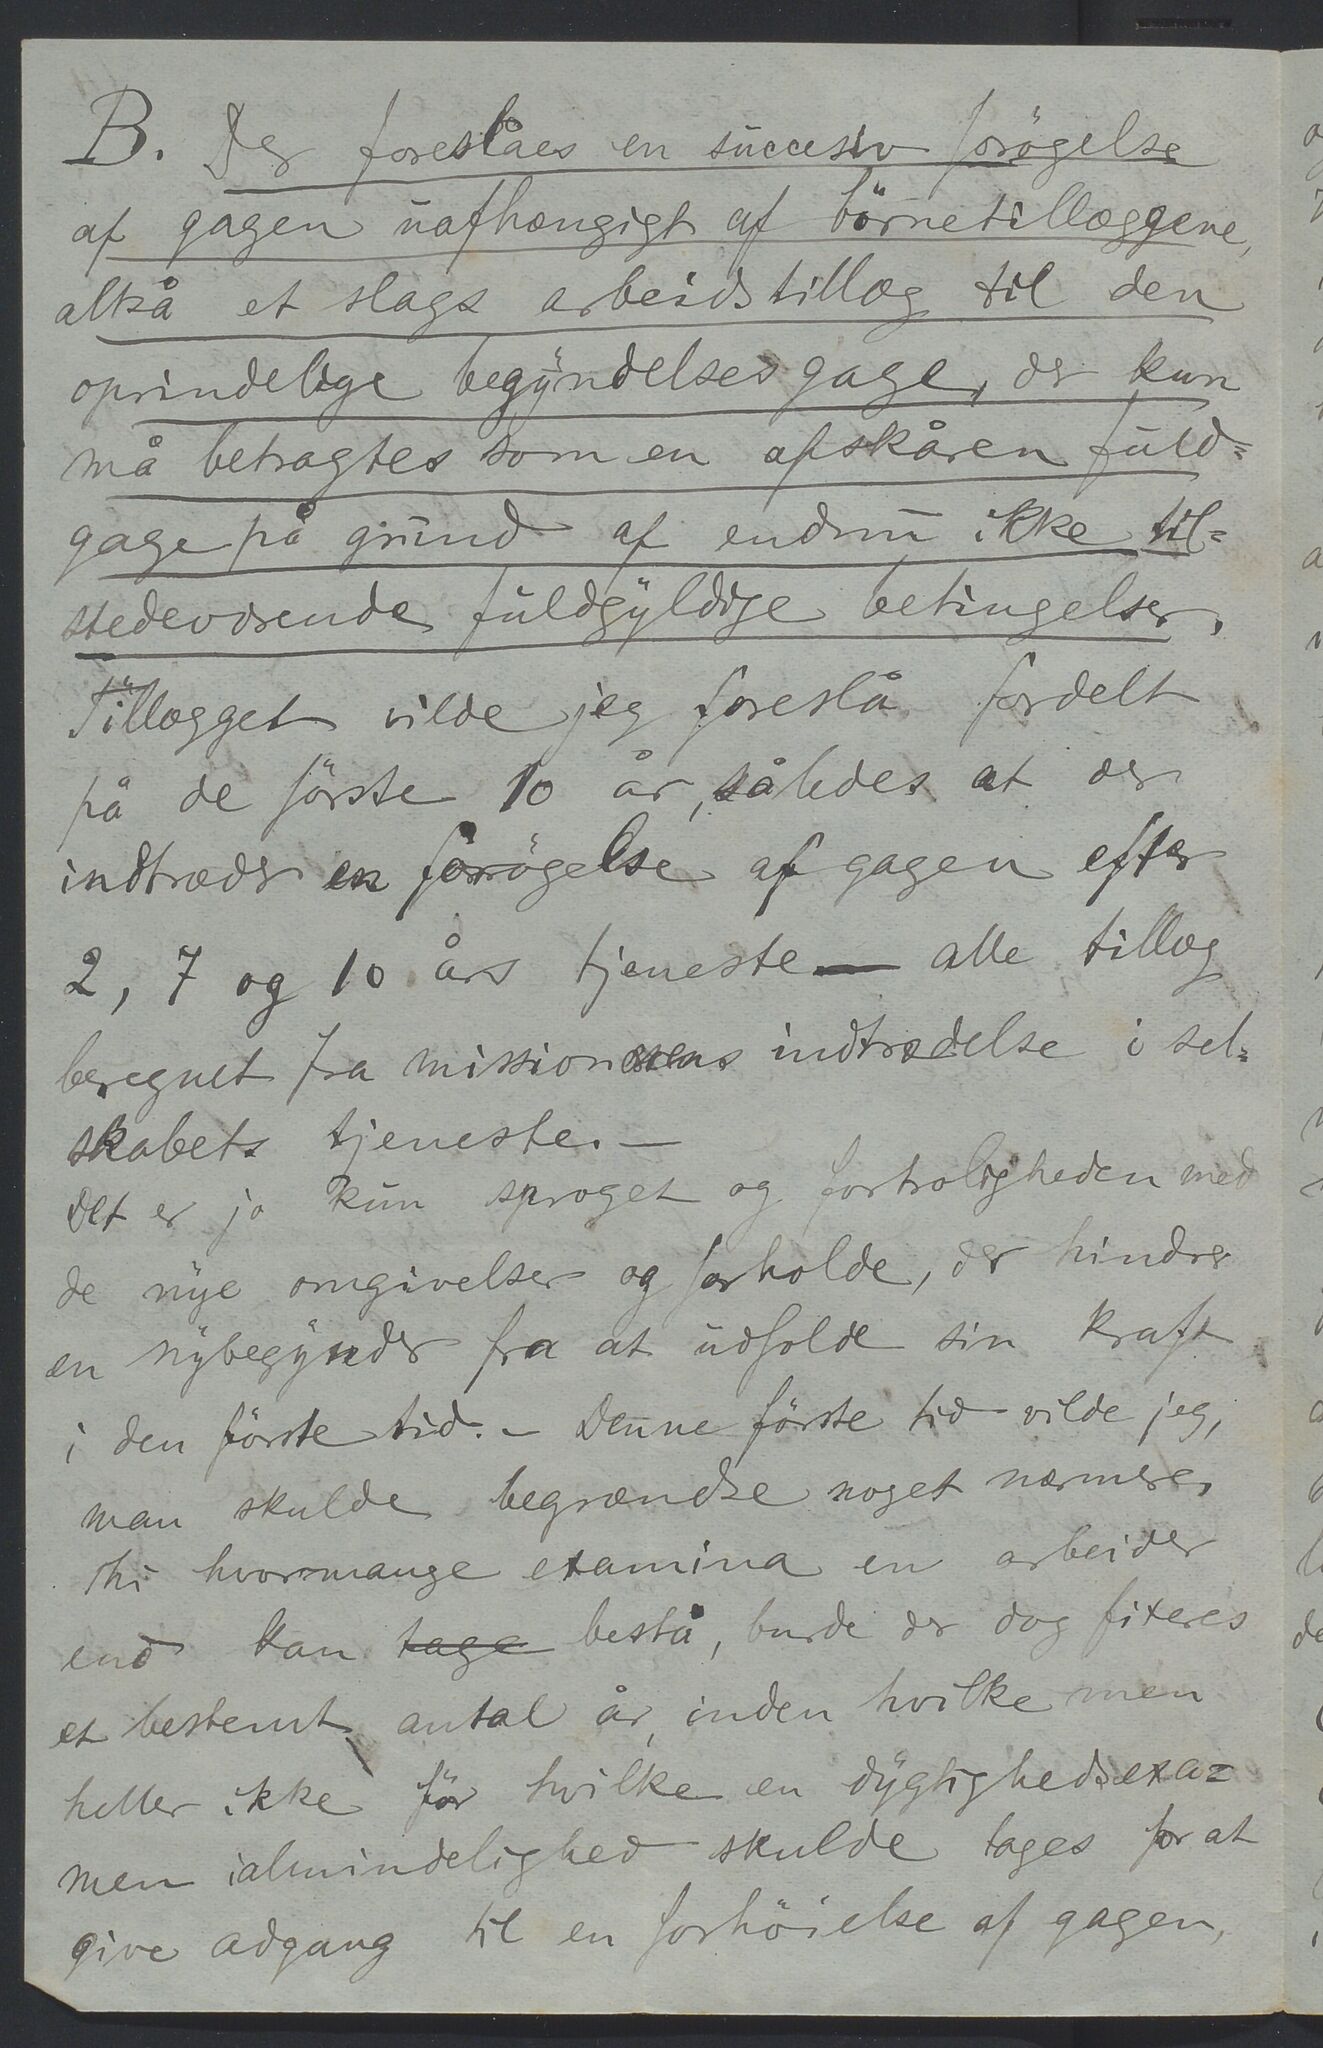 B. Der foreslåes en succesiv forögelse
af gagen uafhængigt af börnetillæggene,
altså et slags arbeidstillæg til den
oprindelige begyndelsesgage, der kun
må betragtes som en afskåren fuld=
gage på grund af endnu ikke til=
stedeværende fuldgyldige betingelser.
Tillægget vilde jeg foreslå fordelt
på de förste 10 år, således at der
indtræder en forögelse af gagen efter
2, 7 og 10 års tjeneste — alle tillæg
beregnet fra missionærens indtrædelse i sel=
skabets tjeneste. —
Det er jo kun sproget og fortroligheden med
de nye omgivelser og forholde, der hindrer
en nybegynder fra at udfolde sin kraft
i den förste tid. – Denne förste tid vilde jeg,
man skulde begrændse noget nærmere.
Thi hvormange examina en arbeider
end kan tage bestå, burde der dog fixeres
et bestemt antal år, inden hvilke men
heller ikke för hvilke en dygtighedsexa=
men ialmindelighed skulde tages for at
give adgang til en forhöielse af gagen,